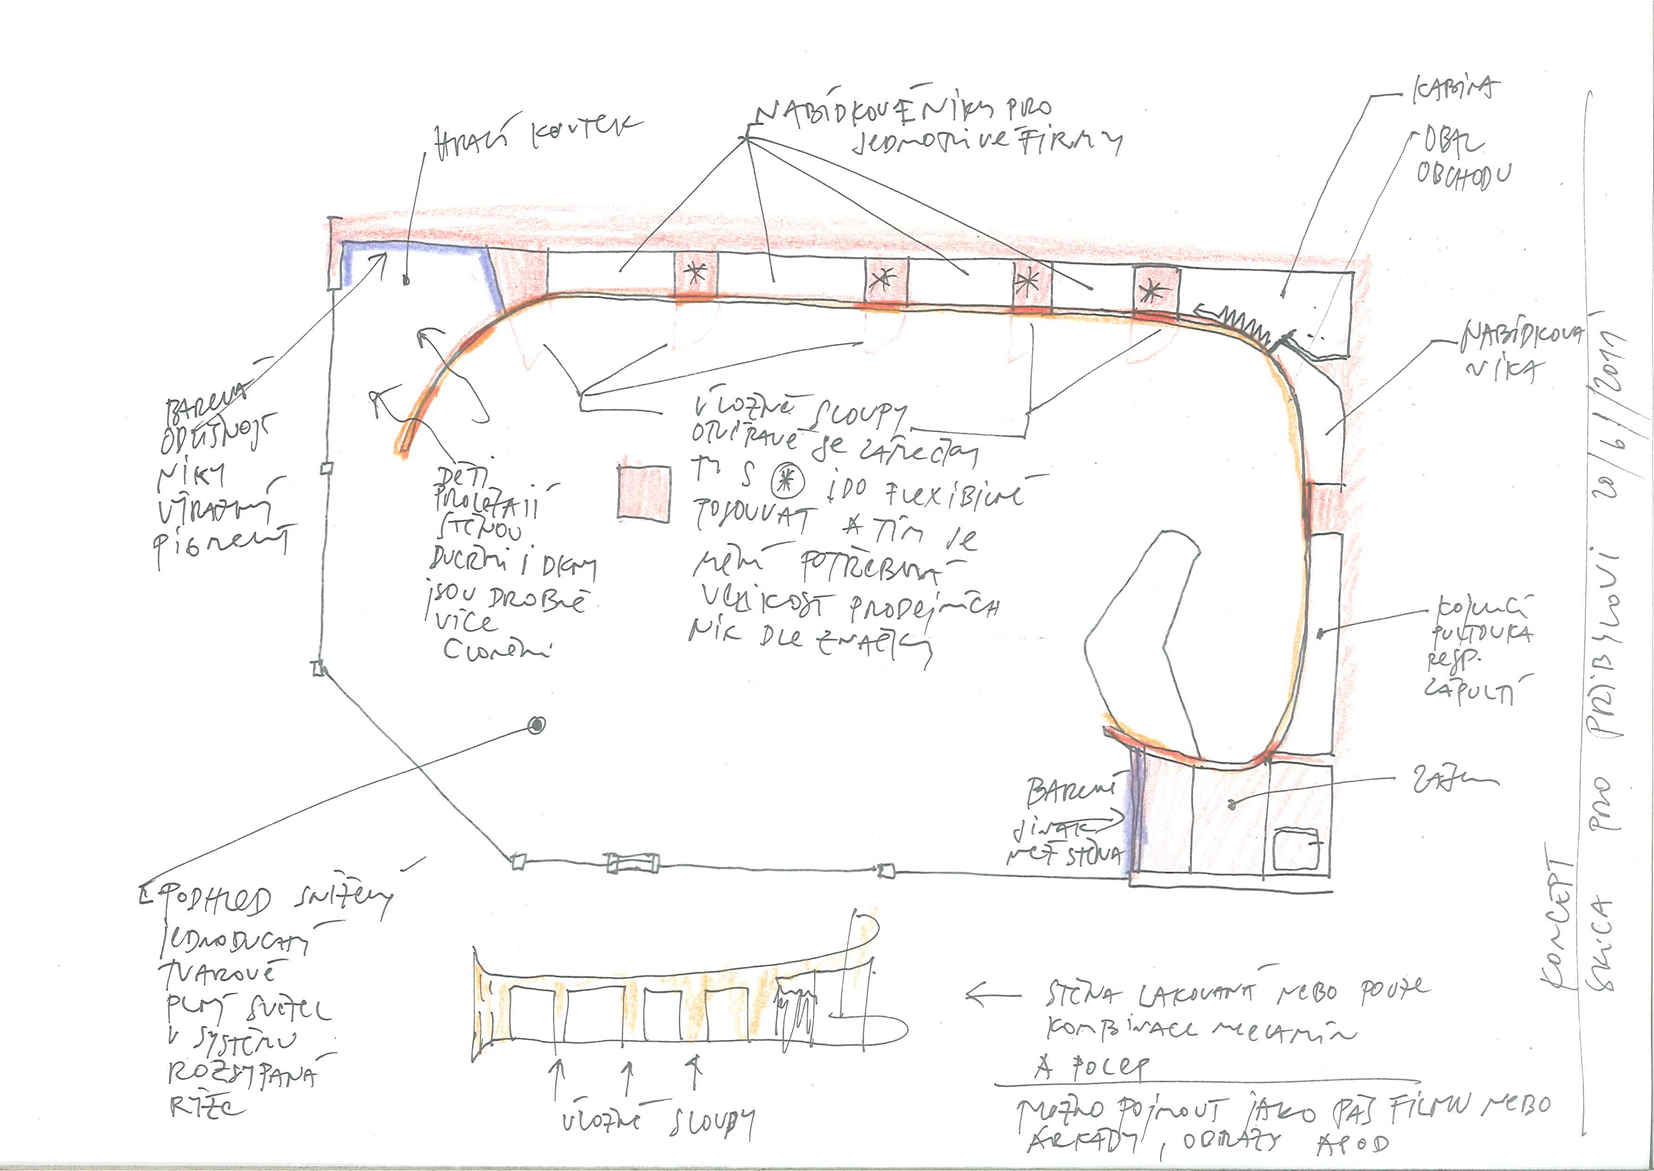 HRACÍ KOUTEK
NABÍDKOVÉ NIKY PRO
JEDNOTLIVÉ FIRMY
KABINA
OBAL
OBCHODU
NABÍDKOVÁ
NIKA
BAREVNÁ
ODLIŠNOST
NIKY
VÝRAZNÝ
PIGMENT
DĚTI
PROLÉZAJÍ
STĚNOU
DVEŘMI I OKNY
JSOU DROBNĚ
VÍCE
CLONĚNI
ÚLOŽNÉ SLOUPY
OTVÍRAVÉ SE ZÁŘEČKY
TY S * JDO FLEXIBILNĚ
POSOUVAT A TÍM SE
MĚNÍ POTŘEBNÁ
VELIKOST PRODEJNÍCH
NIK DLE ZNAČKY
PULTOVKA
RESP.
ZÁPULTÍ
ZÁZEMÍ
BAREVNĚ
JINAK
NEŽ STĚNA
PODHLED SNÍŽENÝ
JEDNODUCHÝ
TVAROVĚ
PLNÝ SVĚTEL
V SYSTÉMU
ROZSYPANÁ
RÝŽE
ÚLOŽNÉ SLOUPY
STĚNA LAKOVANÁ NEBO POUZE
KOMBINACE MELAMIN
A POLEP
MOŽNO POJMOUT JAKO PÁS FILMU NEBO
ARKÁDY, OBRAZY APOD
KONCEPT
SKICA PRO PŘIBYLOVI 20/6/2011